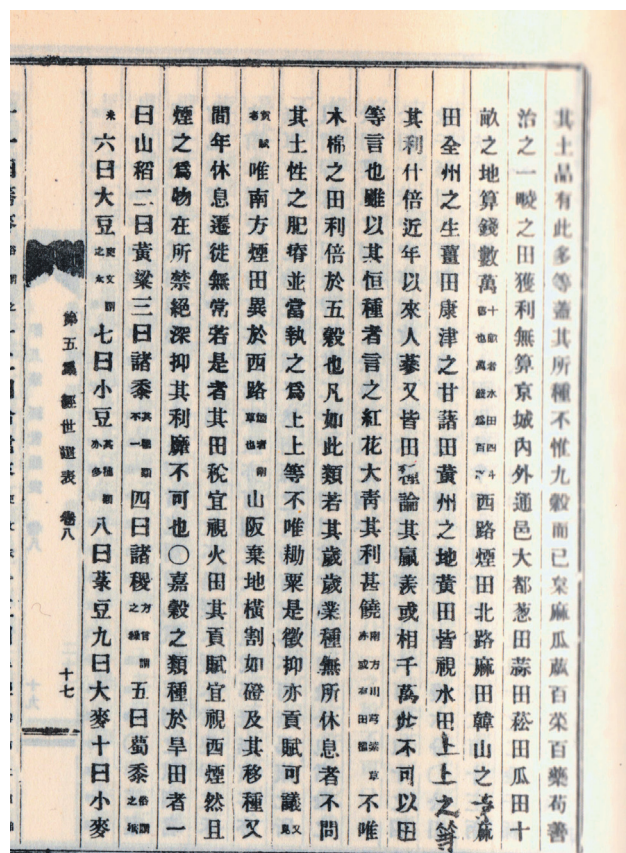 其土品有此多等蓋其所種不惟九穀而已枲麻瓜蓏百菜百藥苟善
治之一畮之田獲利無算京城內外通邑大都葱田蒜田菘田瓜田十
畝之地算錢數萬十畝者水田四斗 西路煙田北路麻田韓山之 麻
田全州之生薑田康津之甘藷田黃州之地黃田皆視水田上上之等
其利什倍近年以來人蔘又皆田種論其贏羨或相千萬此不可以田
等言也雖以其恒種者言之紅花大青其利甚饒南方川芎紫草 不唯
木棉之田利倍於五穀也凡如此類若其歲歲業種無所休息者不問
其土性之肥瘠並當執之爲上上等不唯耡粟是徵抑亦貢賦可議又見
貢賦 唯南方煙田異於西路 山阪棄地橫割如磴及其移種又
間年休息遷徙無常若是者其田稅宜視火田其貢賦宜視西煙然且
煙之爲物在所禁絕深抑其利靡不可也〇嘉穀之類種於旱田者一
曰山稻二曰黃粱三曰諸黍其種類不一四曰諸稷方言謂之 五曰蜀黍俗謂之
米六曰大豆 七曰小豆其種類亦多八曰菉豆九曰大麥十曰小麥
第五集 經世遺表 卷八
十七